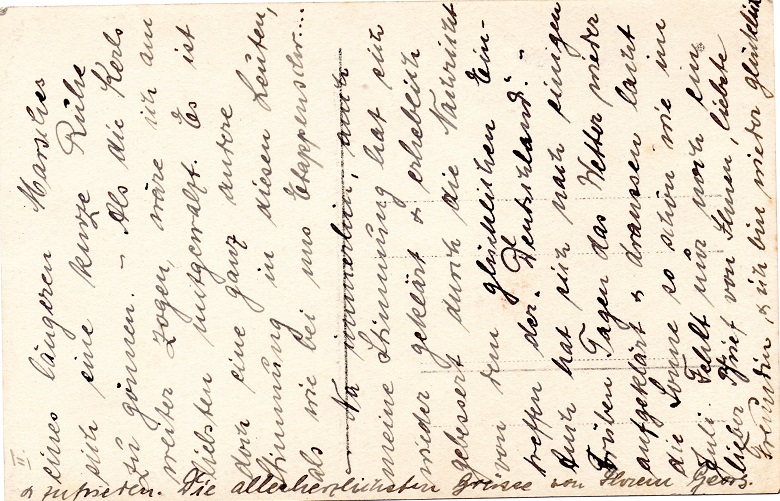 II
eines längeren Marsches
sich eine kurze Ruhe
zu gönnen. – Als die Kerls
weiter zogen, wäre ich am
liebsten mitgewalzt. Es ist
doch eine ganz andre
Stimmung in diesen Leuten,
als wie bei uns Etappenschw....
– Na immerhin, auch
meine Stimmung hat sich
wieder geklärt & erheblich
gebessert durch die Nachricht
von dem glücklichen Ein-
treffen der "Deutschland". –
Auch hat sich nach einigen
trüben Tagen das Wetter wieder
aufgeklärt & draussen lacht
die Sonne so schön wie im
Juli. Fehlt nur noch ein
lieber Brief von Ihnen, liebste
Freundin, & ich bin wieder glücklich
& zufrieden. Die allerherzlichsten Grüsse von Ihrem Georg.